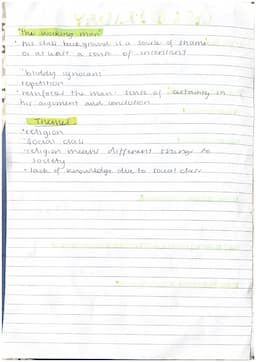 The working man
his class background is a source of shame
or at least a sense of
'bloody ignorant'
repetition
reinforces the man's sense of certainty in
his argument and conclusion
Themes
• religion
• social class
• religion means different things to
society
• lack of knowledge due to social class